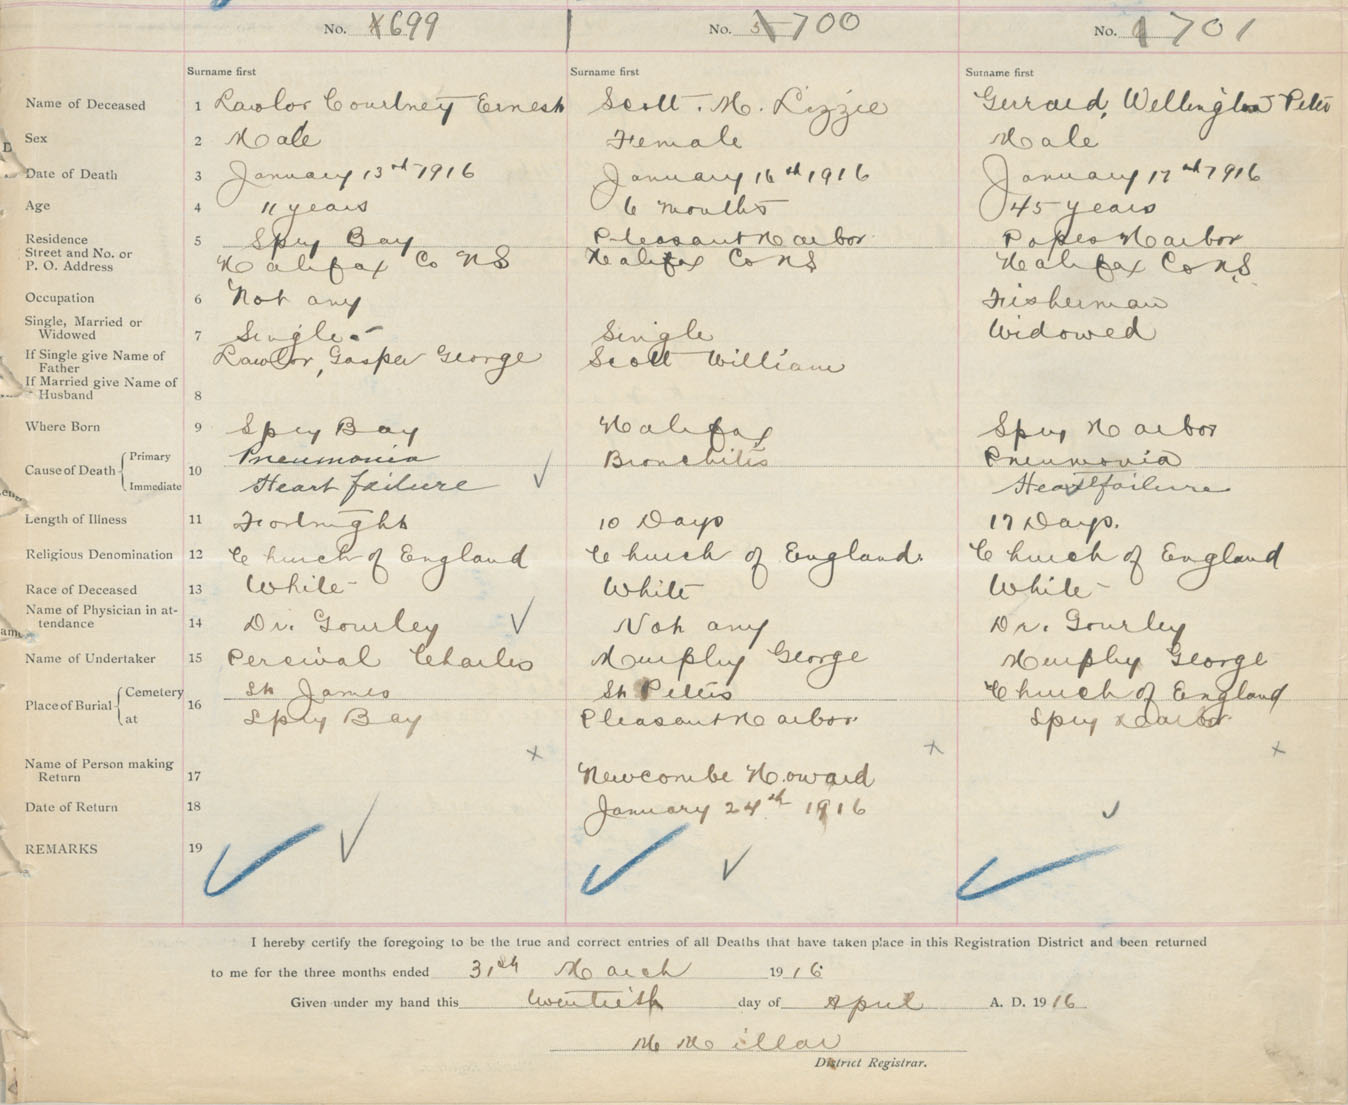 No. 699 No. 700 No. 701
Surname first Surname first Surname first
Name of Deceased 1 Lawlor Courtney Ernest Scott. M. Lizzie Gerrard, Wellington Peter
Sex 2 Male Female Male
Date of Death 3 January 13rd 1916 January 16th 1916 January 17th 1916
Age 4 11 years 6 months 45 years
Residence 5 Spry Bay Pleasant Harbor Popes Harbor
Street and No. or
P. O. Address Halifax Co NS Halifax Co NS Halifax Co N.S.
Occupation 6 Not any Fisherman
Single, Married or
Widowed 7 Single Single Widowed
If Single give Name of
Father Lawlor, Gasper George Scott William
If Married give Name of
Husband 8
Where Born 9 Spry Bay Halifax Spry Harbor
Cause of Death Primary 10 Pneumonia Bronchitis Pneumonia
Immediate Heart failure Heart failure
Length of Illness 11 Fortnight 10 Days 17 Days.
Religious Denomination 12 Church of England Church of England. Church of England
Race of Deceased 13 White White White
Name of Physician in at-
tendance 14 Dr. Gourley Not any Dr. Gourley
Name of Undertaker 15 Percival Charles Murphy George Murphy George
Place of Burial Cemetery 16 St James St Peters Church of England
at Spry Bay Pleasant Harbor Spry Harbor
Name of Person making
Return 17 Newcombe Howard
Date of Return 18 January 24th 1916
REMARKS 19
I hereby certify the foregoing to be the true and correct entries of all Deaths that have taken place in this Registration District and been returned
to me for the three months ended 31st March 1916
Given under my hand this twentieth day of April A. D. 1916
M Millar
District Registrar.